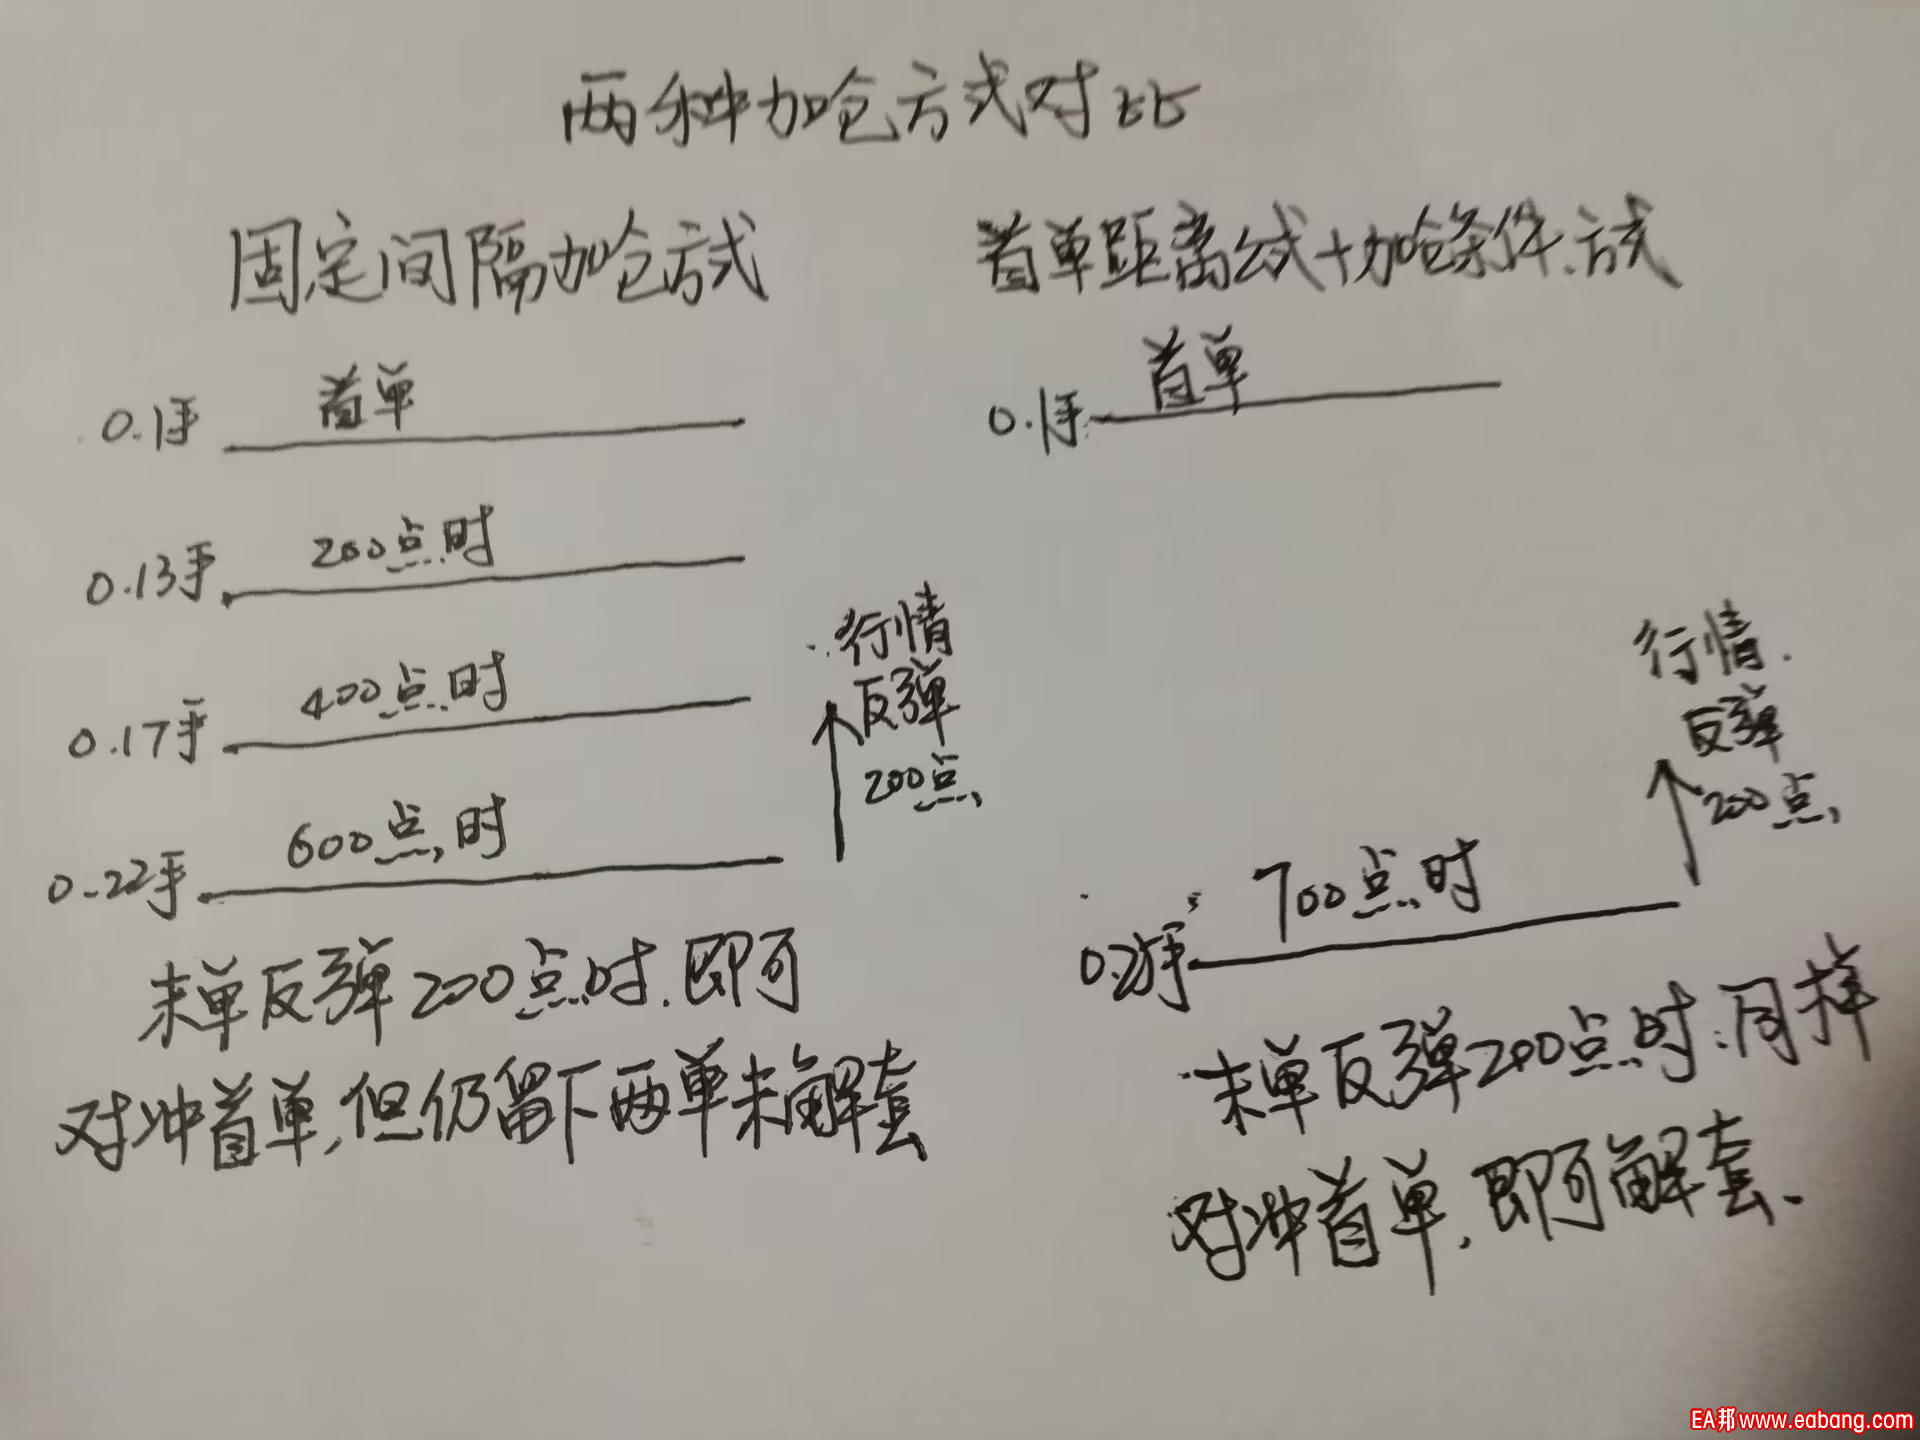 两种加仓方式对比
固定间隔加仓方式
0.1手 首单
0.13手 200点时
0.17手 400点时
0.22手 600点时
行情
反弹
200点
末单反弹200点时.即可
对冲首单,但仍留下两单未解套
首单距离公式+加仓条件方式
0.1手 首单
行情
反弹
200点
700点时
末单反弹200点时.同样
对冲首单,即可解套、
EA邦www.eabang.com